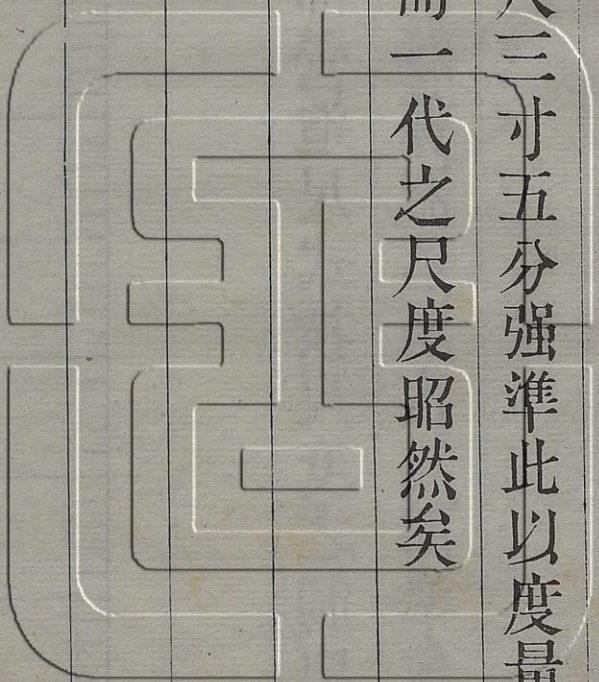 尺三寸五分强準此以度量
而一代之尺度昭然矣